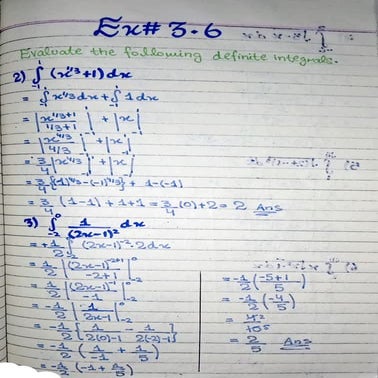 Ex# 3.6
Evaluate the following definite integrals.
2) ∫₋₁¹ (x^1/3+1) dx
= ∫₋₁¹ x^1/3 dx + ∫₋₁¹ 1 dx
= |x^1/3+1 / 1/3+1|₋₁¹ + |x|₋₁¹
= |x^4/3 / 4/3|₋₁¹ + |x|₋₁¹
= 3/4 |x^4/3|₋₁¹ + |x|₋₁¹
= 3/4 {(1)^4/3 - (-1)^4/3} + 1-(-1)
= 3/4 (1-1) + 1+1 = 3/4 (0)+2 = 2 Ans
3) ∫₋₂⁰ 1/(2x-1)² dx
= +1/2 ∫₋₂⁰ (2x-1)^-2 . 2dx
= 1/2 |(2x-1)^-2+1 / -2+1|₋₂⁰
= 1/2 |(2x-1)^-1 / -1|₋₂⁰
= -1/2 |1/2x-1|₋₂⁰
= -1/2 [1/2(0)-1 - 1/2(-2)-1]
= -1/2 (1/-1 + 1/5)
= -1/2 (-1+1/5)
= -1/2 (-5+1/5)
= -1/2 (-4/5)
= 2/5 Ans